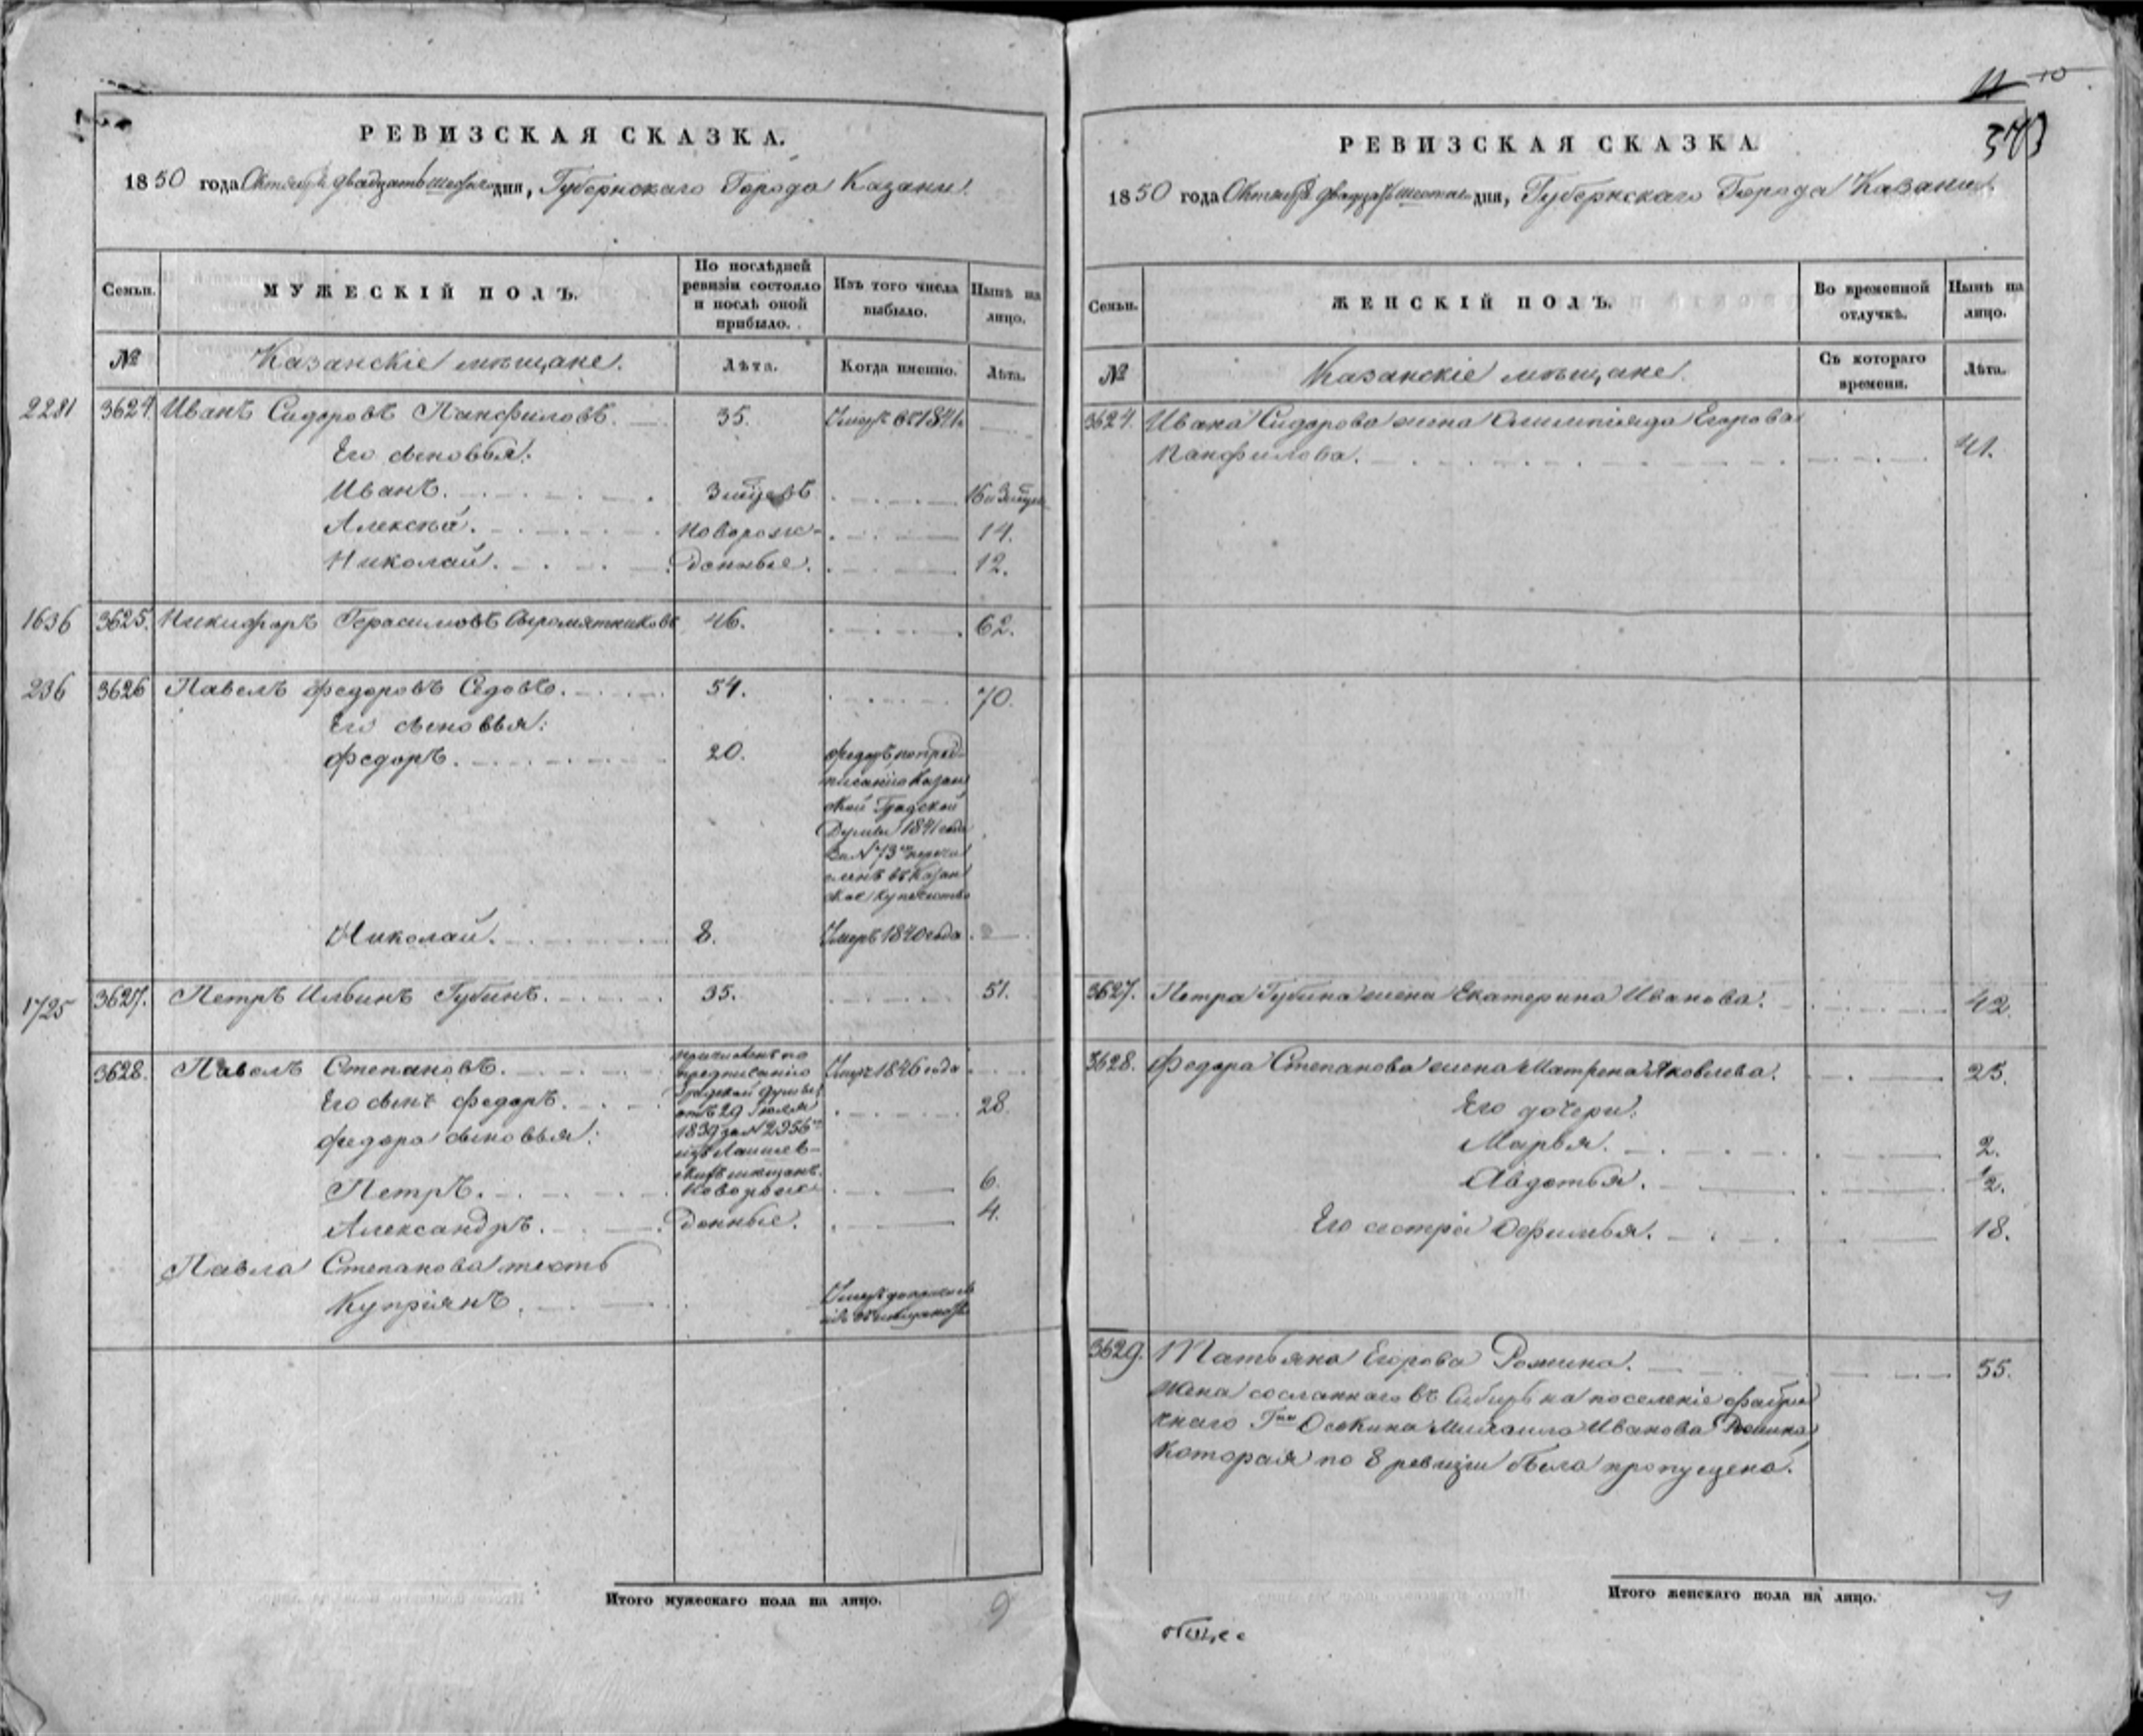 РЕВИЗСКАЯ СКАЗКА.
1850 года Октября двадцать шестаго дня, Губернскаго Города Казани.
Семьи.
МУЖЕСКІЙ ПОЛЪ.
По послѣдней ревизіи состояло и послѣ оной прибыло.
Изъ того числа выбыло.
Нынѣ на лицо.
№
Казанскіе мѣщане.
Лѣта.
Когда именно.
Лѣта.
2281 3624. Иванъ Сидоровъ Панфиловъ. 35. Умеръ въ 1841.
Его сыновья:
Иванъ. 3 мѣсяцевъ 16 и 3 мѣсяц.
Алексѣй. Новорож- 14.
Николай. денные. 12.
1636 3625. Никифоръ Герасимовъ Сыромятниковъ 46. 62.
236 3626 Павелъ Федоровъ Седовъ. 54. 70.
Его сыновья:
Федоръ. 20. Федоръ, по пред-
писанію Казан
ской Градской
Думы 1841 года
за № 73м перечи
сленъ въ Казан
ское купечество
Николай. 8. Умеръ 1840 года
1725 3627. Петръ Ильинъ Губинъ. 35. 51.
3628. Павелъ Степановъ. Умеръ 1846 года
Его сынъ Федоръ. 28.
Федора сыновья:
причисленъ по
предписанію
Градской Думы
отъ 29 Іюля
1839 за № 2956м
изъ Лаишев-
скихъ мѣщанъ.
Петръ. Новорож 6.
Александръ. денные. 4.
Павла Степанова тесть
Купріянъ.
Итого мужескаго пола на лицо. 9
11 10
РЕВИЗСКАЯ СКАЗКА
1850 года Октября двадцать шестаго дня, Губернскаго Города Казани.
Семьи.
ЖЕНСКІЙ ПОЛЪ.
Во временной отлучкѣ.
Нынѣ на лицо.
№
Казанскіе мѣщане.
Съ котораго времени.
Лѣта.
3624. Ивана Сидорова жена Олимпіяда Егорова
Панфилова. 41.
3627. Петра Губина жена Екатерина Иванова. 42.
3628. Федора Степанова жена Матрена Яковлева. 25.
Его дочери:
Марья. 2.
Авдотья. 1/2.
Его сестра Офимья. 18.
3629. Татьяна Егорова Ромина. 55.
жена сосланнаго въ Сибирь на поселеніе фабри
чнаго Гна Осокина Михаила Иванова
которая по 8 ревизіи была пропущена.
Итого женскаго пола на лицо. 7